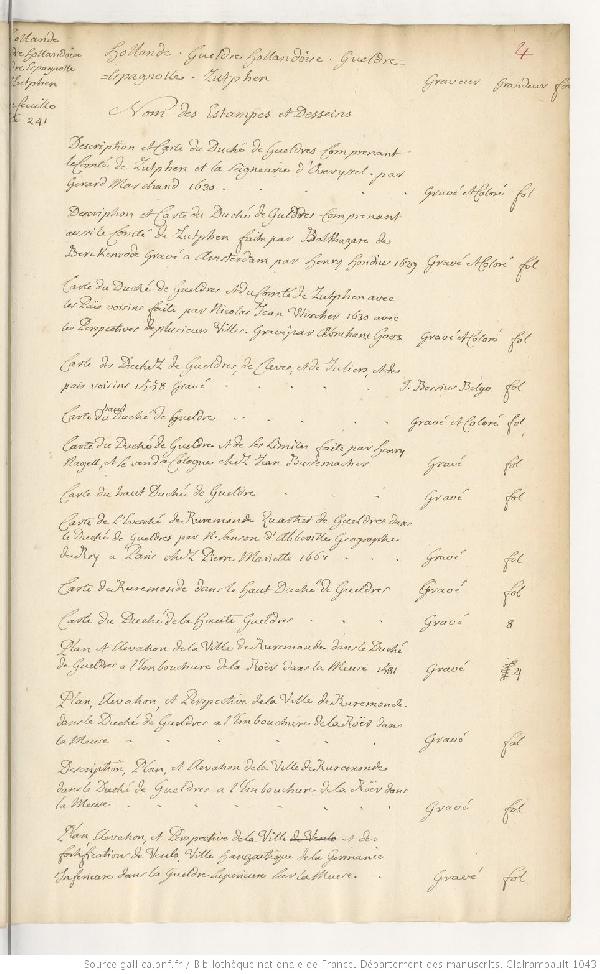 Hollande
Hollandoise
Espagnolle
Zutphen
241
4
Hollande. Gueldre Hollandoise. Gueldre
Espagnolle. Zutphen
Graveur Grandeur fol
Nom des Estampes et Desseins
Description et Carte du Duché de Gueldres Comprenant
le Comté de Zutphen et la Seigneurie d'Overyssel. par
Gerard Marchand 1630. Gravé et Coloré fol
Description et Carte du Duché de Gueldres Comprenant
aussi le Comté de Zutphen faite par Balthazare de
Berckenrode Gravé a Amsterdam par Henry Hondius 1629 Gravé et Coloré fol
Carte du Duché de Gueldres et du Comté de Zutphen avec
les Pais voisins faite par Nicolas Jean Visscher 1630 avec
les Perspectives de plusieurs Villes. Gravé par Abraham Goos Gravé et Coloré fol
Carte des Duchez de Gueldres, de Cleves, et de Juliers et des
pais voisins 1558 Gravé J. Bessius Belga fol
Carte du haut Duché de Gueldre Gravé et Coloré fol
Carte du Duché de Gueldre et de ses Limites faite par Henry
Nagell, et se vend a Cologne chez Jean Bussemacher Gravé fol
Carte du haut Duché de Gueldre Gravé fol
Carte de l'Evesché de Ruremonde Quartier de Gueldres dans
le Duché de Gueldres par N. Sanson d'Abbeville Geographe
du Roy a Paris chez Pierre Mariette 1661 Gravé fol
Carte de Ruremonde dans le Haut Duché de Gueldres Gravé fol
Carte du Duché de la Haute Gueldres Gravé 8
Plan et Elevation de la Ville de Ruremonde dans le Duché
de Gueldres a l'Embouchure de la Roër dans la Meuse 1581 Gravé 4
Plan, Elevation, et Perspective de la Ville de Ruremonde
dans le Duché de Gueldres a l'Embouchure de la Roër dans
la Meuse Gravé fol
Description, Plan, et Elevation de la Ville de Ruremonde
dans le Duché de Gueldres a l'Embouchure de la Roër dans
la Meuse Gravé fol
Plan Elevation, et Perspective de la Ville de Venlo et des
fortification de Venlo Ville Hanzeatique de la Germanie
Inferieure dans la Gueldre Superieure sur la Meuse. Gravé fol
Source gallica.bnf.fr / Bibliothèque nationale de France. Département des manuscrits. Clairambault 1043